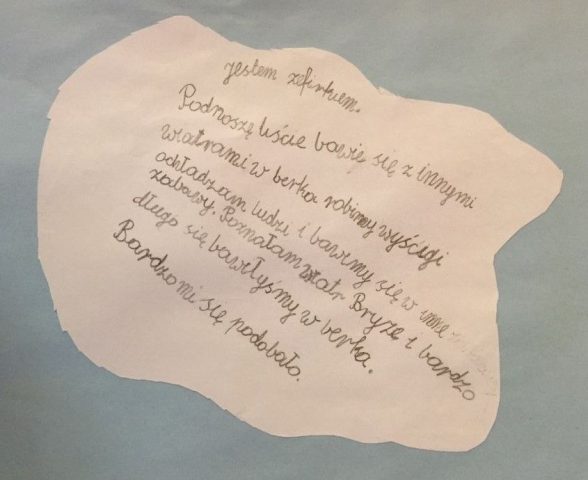 jestem zefirkiem.
Podnoszę liście bawię się z innymi
wiatrami w berka robimy wyścigi
ochładzam ludzi i bawimy się w inne
zabawy. Poznałam wiatr Bryzę i bardzo
długo się bawiłyśmy w berka.
Bardzo mi się podobało.